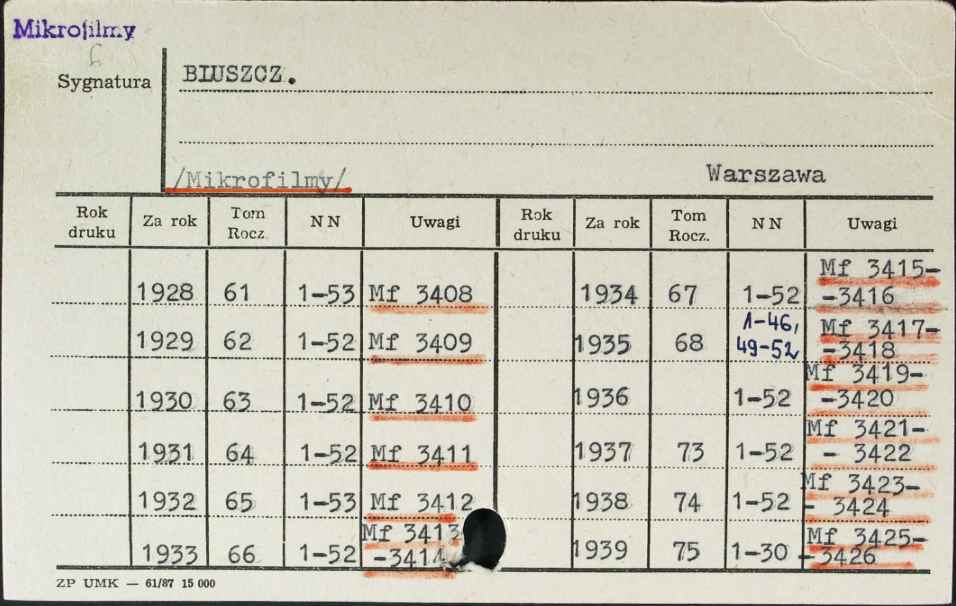 Mikrofilmy
Sygnatura BLUSZCZ.
/Mikrofilmy/ Warszawa
Rok druku Za rok Tom Rocz. NN Uwagi Rok druku Za rok Tom Rocz. NN Uwagi
1928 61 1-53 Mf 3408 1934 67 1-52 Mf 3415--3416
1929 62 1-52 Mf 3409 1935 68 1-46, 49-52 Mf 3417--3418
1930 63 1-52 Mf 3410 1936 1-52 Mf 3419--3420
1931 64 1-52 Mf 3411 1937 73 1-52 Mf 3421-- 3422
1932 65 1-53 Mf 3412 1938 74 1-52 Mf 3423-- 3424
1933 66 1-52 Mf 3413-3414 1939 75 1-30 Mf 3425--3426
ZP UMK — 61/87 15 000